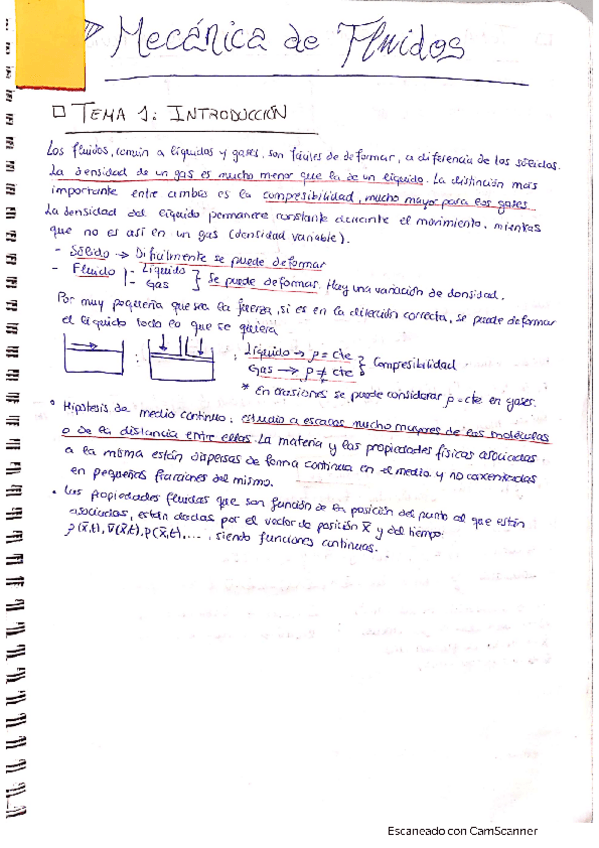 Mecánica de Fluidos
□ TEMA 1: INTRODUCCIÓN
Los fluidos, común a líquidos y gases, son fáciles de deformar, a diferencia de los sólidos.
La densidad de un gas es mucho menor que la de un líquido. La distinción más
importante entre ambas es la compresibilidad, mucho mayor para los gases.
La densidad del líquido permanece constante durante el movimiento, mientras
que no es así en un gas (densidad variable).
- Sólido → Difícilmente se puede deformar
- Fluido - Líquido
- Gas } Se puede deformar. Hay una variación de densidad.
Por muy pequeña que sea la fuerza, si es en la dirección correcta, se puede deformar
el líquido todo lo que se quiera
: ; Líquido → ρ = cte
Gas → ρ ≠ cte } Compresibilidad
* En ocasiones se puede considerar ρ = cte en gases.
• Hipótesis de medio continuo: estudio a escalas mucho mayores de las moléculas
o de la distancia entre ellas. La materia y las propiedades físicas asociadas
a la misma están dispersas de forma continua en el medio y no concentradas
en pequeñas fracciones del mismo.
• Las propiedades fluidas que son función de en posición del punto al que están
asociadas, están dadas por el vector de posición x̄ y del tiempo:
ρ(x̄,t), v̄(x̄,t), p(x̄,t),..., siendo funciones continuas.
Escaneado con CamScanner